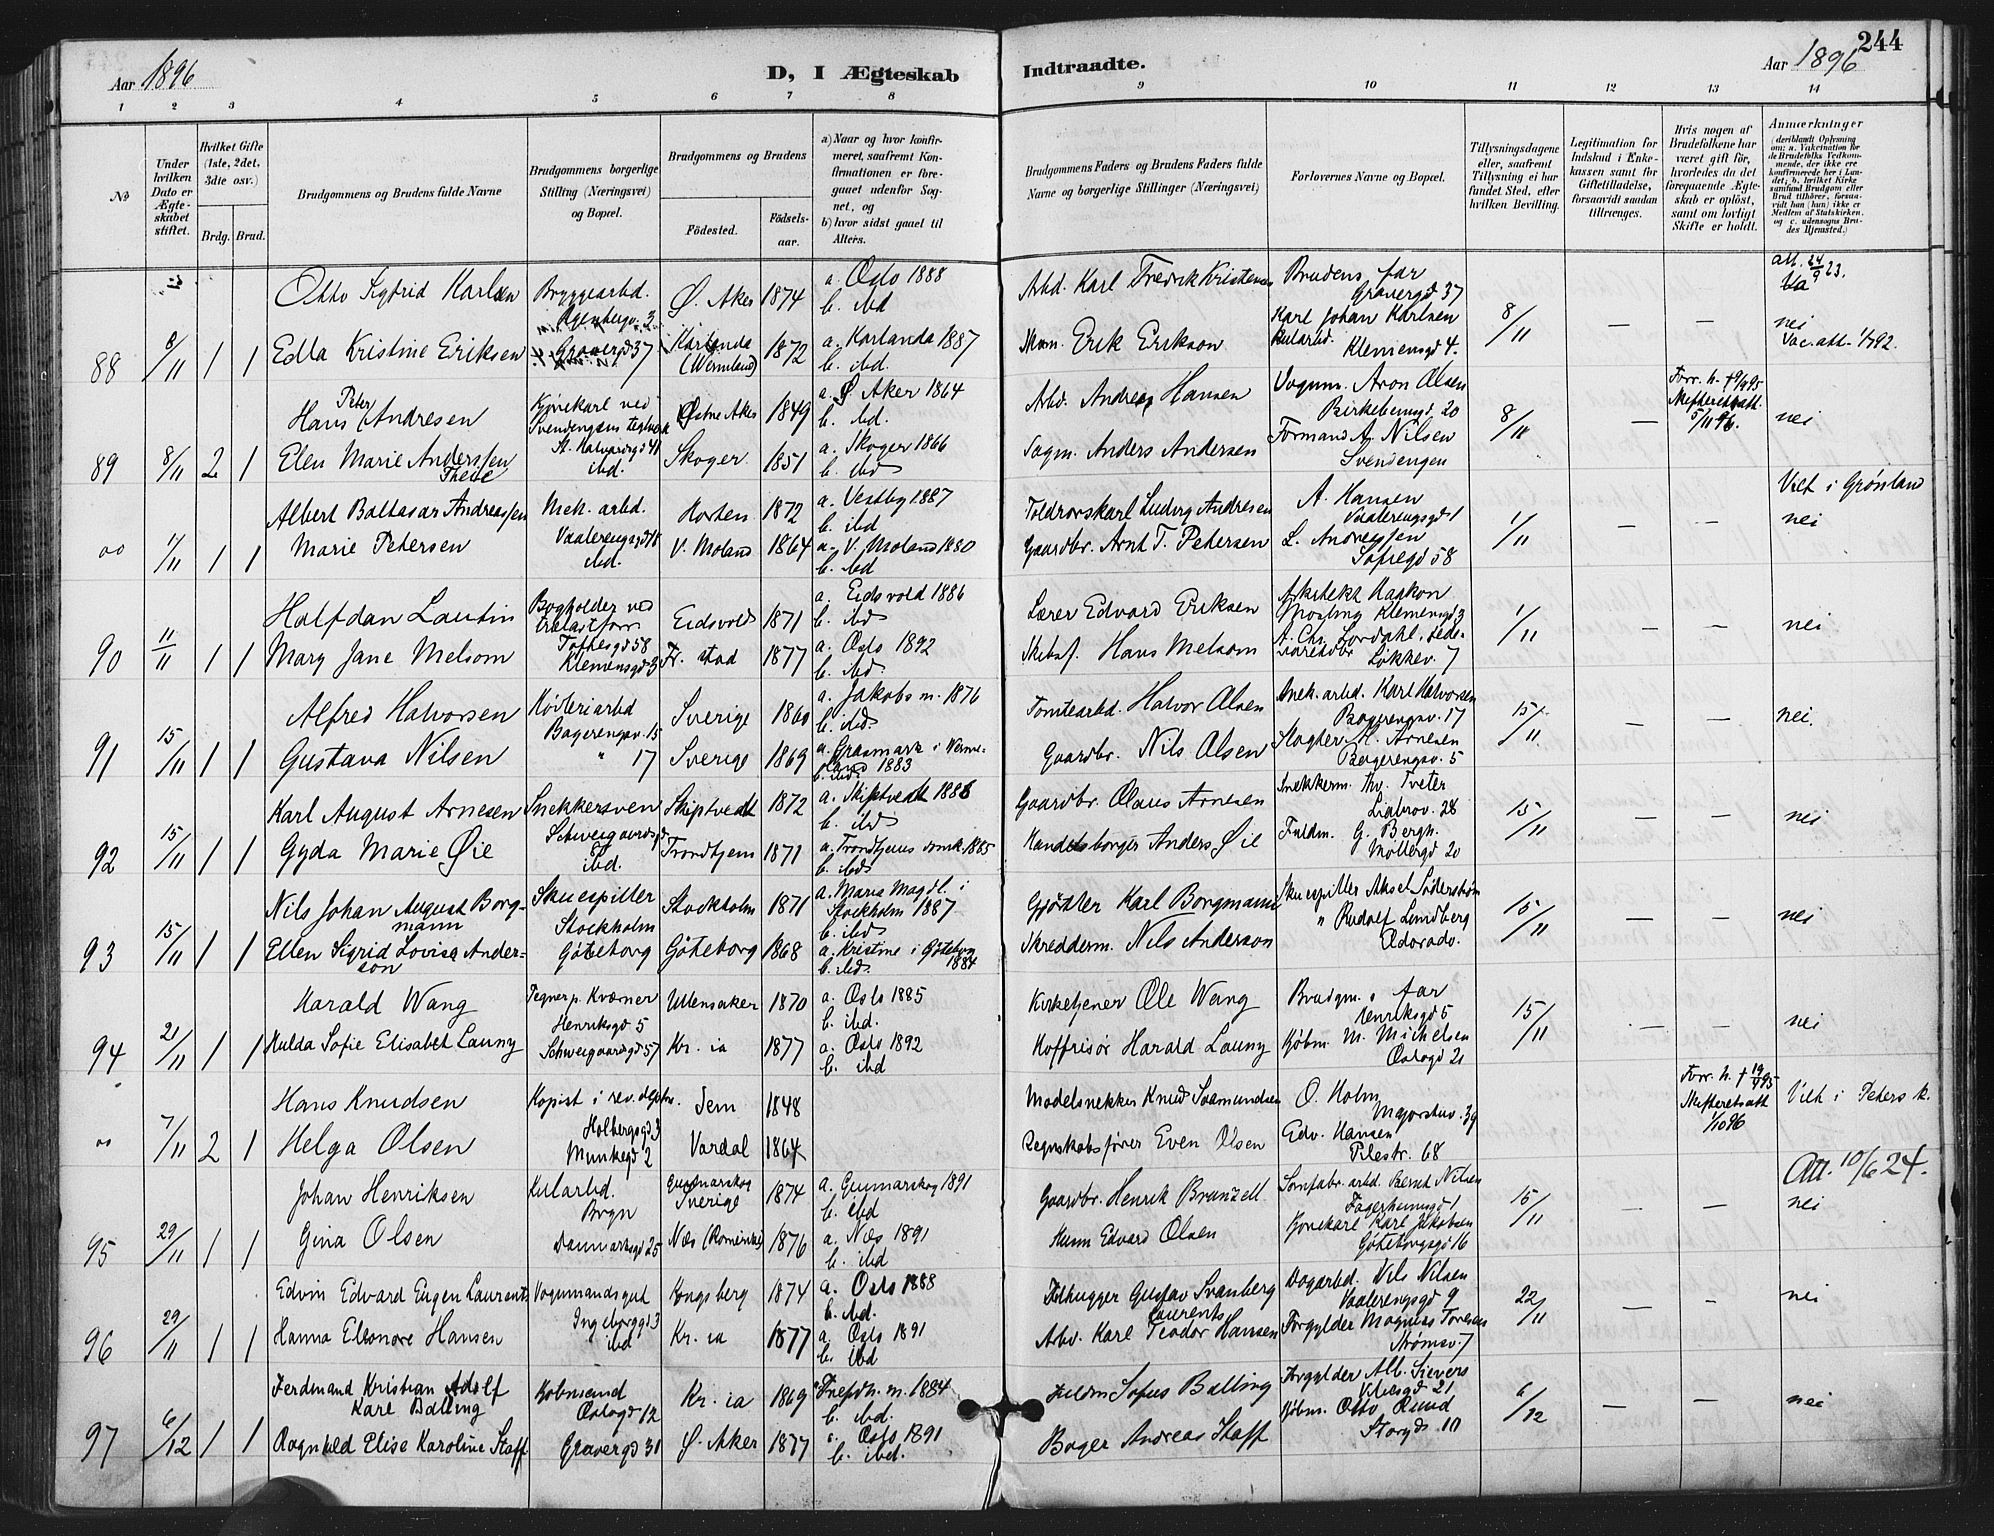 244
Aar 1896
D, I Ægteskab Indtraadte.
Aar 1896
1 2 3 4 5 6 7 8 9 10 11 12 13 14
No
Under hvilken Dato er Ægteskabet stiftet.
Hvilket Gifte (1ste, 2det, 3die osv.)
Brdg. Brud.
Brudgommens og Brudens fulde Navne
Brudgommens borgerlige Stilling (Næringsvei) og Bopæl.
Brudgommens og Brudens
Fødested. Fødselsaar.
a) Naar og hvor konfirmeret, saafremt Konfirmationen er foregaaet udenfor Sognet, og
b) hvor sidst gaaet til Alters.
Brudgommens Faders og Brudens Faders fulde Navne og borgerlige Stillinger (Næringsvei)
Forlovernes Navne og Bopæl.
Tillysningsdagene eller, saafremt Tillysning ei har fundet Sted, efter hvilken Bevilling.
Legitimation for Indskud i Enkekassen samt for Giftetilladelse, forsaavidt saadan tillrænges.
Hvis nogen af Brudefolkene har været gift før, hvorledes da det foregaaende Ægteskab er opløst, samt om lovligt Skifte er holdt.
Anmerkninger (deriblandt Oplysning om: a. Vakcination for de Brudefolks Vedkommende, der ikke ere konfirmerede her i Landet; b. hvilket Kirkesamfund Brudgom eller Brud tilhører, forsaavidt han (hun) ikke er Medlem af Statskirken, og c. udensogns Brudes Hjemsted.)
Otto Sigfrid Karlsen Bryggearbd. Ø. Aker 1874 a. Oslo 1888 b. ibd Arbd. Karl Fredrik Kristensen Brudens far Gravergd 37 att. 24/9 23.
88 8/11 1 1 Edla Kristine Eriksen Gravergd 37 Karlanda (Wermland) 1872 a. Karlanda 1887 b. ibd. Mam. Erik Erikson Karl Johan Karlsen Kularbd. Klemensgd 4. 8/11 — — nei Vac. att. 1/7 92.
Hans Peter Andresen Kjørekarl ved Svendengens teglverk St. Halvardsgd 41 Østre Aker 1849 a. Ø Aker 1864 b. ibd. Arbd. Andreas Hansen Vognm. Aron Olsen Birkebeinergd. 20 8/11 — Forr. h. † 9/4 95 Skifteretsatt. 5/11 96. nei
89 8/11 2 1 Elen Marie Anderssen Thewe ibd. Skoger 1851 a. Skoger 1866 b. ibd Sagm. Anders Andersen Formand A. Nilsen Svendengen
Albert Baltasar Andreassen Mek. arbd. Vaalerengsgd 18 Horten 1872 a. Vestby 1887 b. ibd Toldrorskarl Ludvig Andresen A. Hansen Vaalerengsgd 1 1/11 — — Viet i Grønland nei
00 1/11 1 1 Marie Petersen ibd. V. Moland 1864 a. V. Moland 1880 b. ibd Gaardbr. Arnt T. Petersen L. Andreassen Sofiegd 58
Halfdan Lautin Bogholder ved trælastforr. Toftesgd 58 Eidsvold 1871 a. Eidsvold 1886 b. ibd Lærer Edvard Eriksen Arkitekt Haakon Mosling Klemensgd 3 1/11 — — nei
90 11/11 1 1 Mary Jane Melsom Klemensgd 3 Fr. stad 1877 a. Oslo 1892 b. ibd Skibsf. Hans Melsom A. Chr. Lordahl, Løkkev. 7
Alfred Halvorsen Høvleriarbd Bøgerengsv. 15 Sverige 1860 a. Jakobs m. 1876 b. ibd. Tomtearbd. Halvor Olsen Mek. arbd. Karl Halvorsen Bøgerengsv. 17 15/11 — — nei.
91 15/11 1 1 Gustava Nilsen " 17 Sverige 1869 a. Grasmark i Vermeland 1883 b. ibd. Gaardbr. Nils Olsen Slagter M. Arnesen Bøgerengsv. 5
Karl August Arnesen Snekkersven Schweigaardsgd Skiptvedt 1872 a. Skiptvedt 1886 b. ibd Gaardbr. Olaus Arnesen Snekkerm. Thv. Tveter Liabrov. 28 15/11 — — nei
92 15/11 1 1 Gyda Marie Øie ibd. Trondhjem 1871 a. Trondhjems domk. 1885 b. ibd Handelsborger Anders Øie Fuldm. G. Bergh. Møllergd 20
Nils Johan August Borgmann Skuespiller Stockholm Stockholm 1871 a. Maria Magdl. i Stockholm 1887 b. ibd Gjørtler Karl Borgmann Skuespiller Aksel Söderstrøm 15/11 — — nei
93 15/11 1 1 Ellen Sigrid Lovisa Anderson Göteborg Göteborg 1868 a. Kristine i Göteborg 1884 b. ibd. Skredderm. Nils Anderson " Rudolf Lundberg Eldorado.
Harald Wang Tegner p. Kværner Henriksgd 5 Ullensaker 1870 a. Oslo 1885 b. ibd. Kirketjener Ole Wang Brudgm.s far Henriksgd 5 15/11 — — nei
94 21/11 1 1 Hulda Sofie Elisabet Launy Schweigaardsgd 57 Kr. ia 1877 a. Oslo 1892 b. ibd Hoffrisør Harald Launy Kjøbm. M. Mikelsen Oslogd 21
Hans Knudsen Kopist i rev. deptm. Holbergsgd 3 Jem 1848 Modelsnekker Knud Svamundsen O. Holm Majorstuv. 39 Forr. h. † 19/4 95 Skifteretsatt 1/10 96 Viet i Peters k.
00 7/11 2 1 Helga Olsen Munkegd 2 Vardal 1864 Regnskabsfører Even Olsen Edv. Hansen Pilestr. 68
Johan Henriksen Kularbd. Bryn Gunnarskog Sverige 1874 a. Gunnarskog 1891 b. ibd Gaardbr. Henrik Brunzell Somfabr. arbd. Bernt Nilsen Fagerheimsgd 1 15/11 — — Att. 10/6 24. nei
95 29/11 1 1 Gina Olsen Danmarksgd 25 Næs (Romerike) 1876 a. Næs 1891 b. ibd Husm Edvard Olsen Kjørekarl Karl Jakobsen Göteborgsgd 16
Edvin Edvard Eugen Laurents Vognmandsgut Ingeborggd 3 Kongsberg 1874 a. Oslo 1888 b. ibd. Filhugger Gustav Svanberg Laurents Vogarbd. Nils Nilsen Vaalerengsgd 9 22/11 — — nei
96 29/11 1 1 Hanna Eleonore Hansen ibd Kr. ia 1877 a. Oslo 1891 b. ibd Arbd. Karl Teodor Hansen Forgylder Magnus Toresen Strømsv. 7
Ferdinand Kristian Adolf Karl Balling Kobmand Oslogd 12 Kr. ia 1869 Trefdh. m. 1884 b. ibd. Fuldm Sofus Balling Forgylder Alb. Sievers 21 6/12 — — nei
97 6/12 1 1 Ragnhild Elise Karoline Staff Gravergd 31 Ø. Aker 1877 a. Oslo 1891 b. ibd. Bager Andreas Staff Kjøbm. Otto Rund Storgd. 10